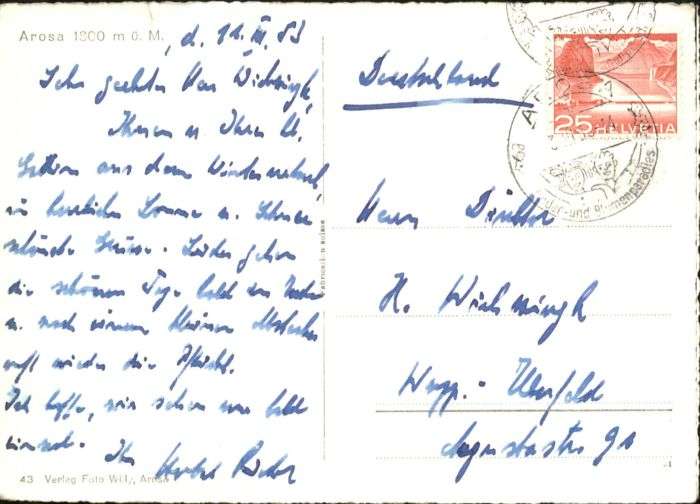 Arosa 1800 m ü. M.
, d. 11. III. 53
Sehr geehrter Herr Wichmingh,
Ihnen u Ihrer lb.
Gattin aus dem Winterurlaub,
in herrlicher Sonne u. Schnee
schönste Grüsse. Leider gehen
die schönen Tage bald zu Ende
u. nach einem kleinen Abstecher
ruft wieder die Pflicht.
Ich hoffe, wir sehen uns bald
einmal. Ihr
43 Verlag Foto Arosa
Deutschland
25 HELVETIA
Herrn Direktor
H. Wichmingh
Wupp.-Elberfeld
Augustastr 91